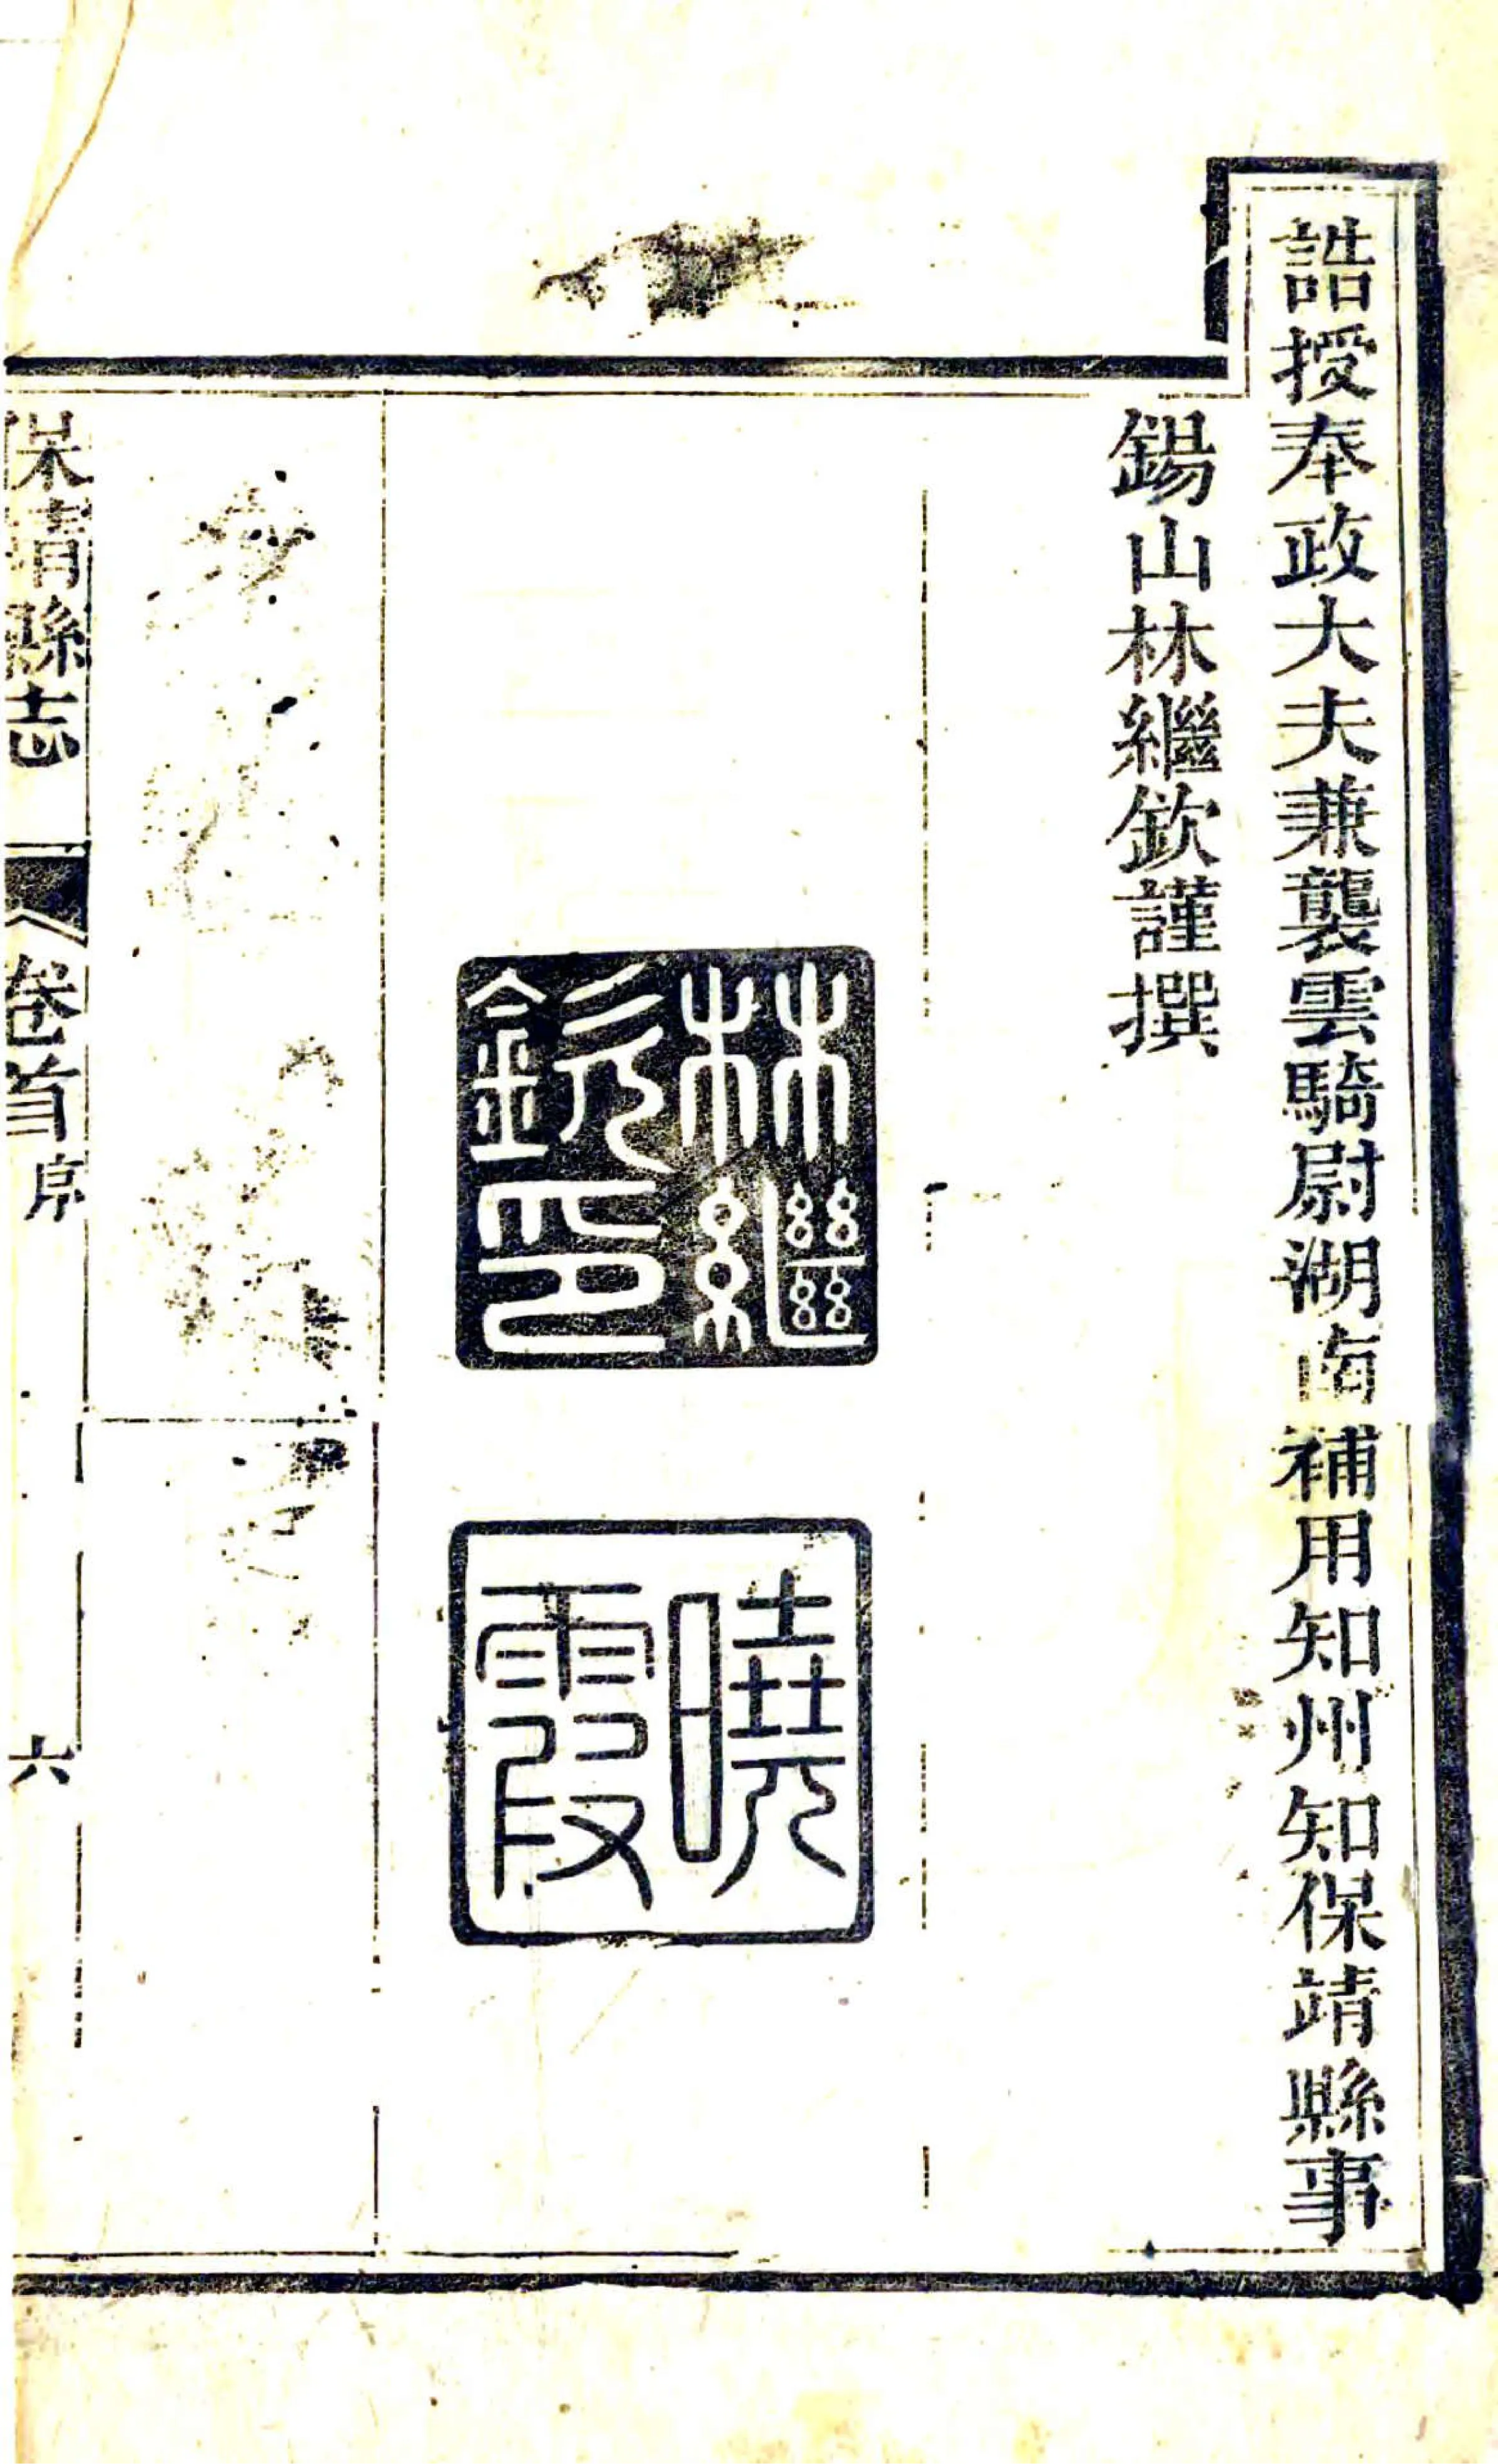 誥授奉政大夫兼襲雲騎尉湖南補用知州知保靖縣事
錫山林繼欽謹撰
林繼
欽印
曉
霞
保靖縣志
卷首
序
六